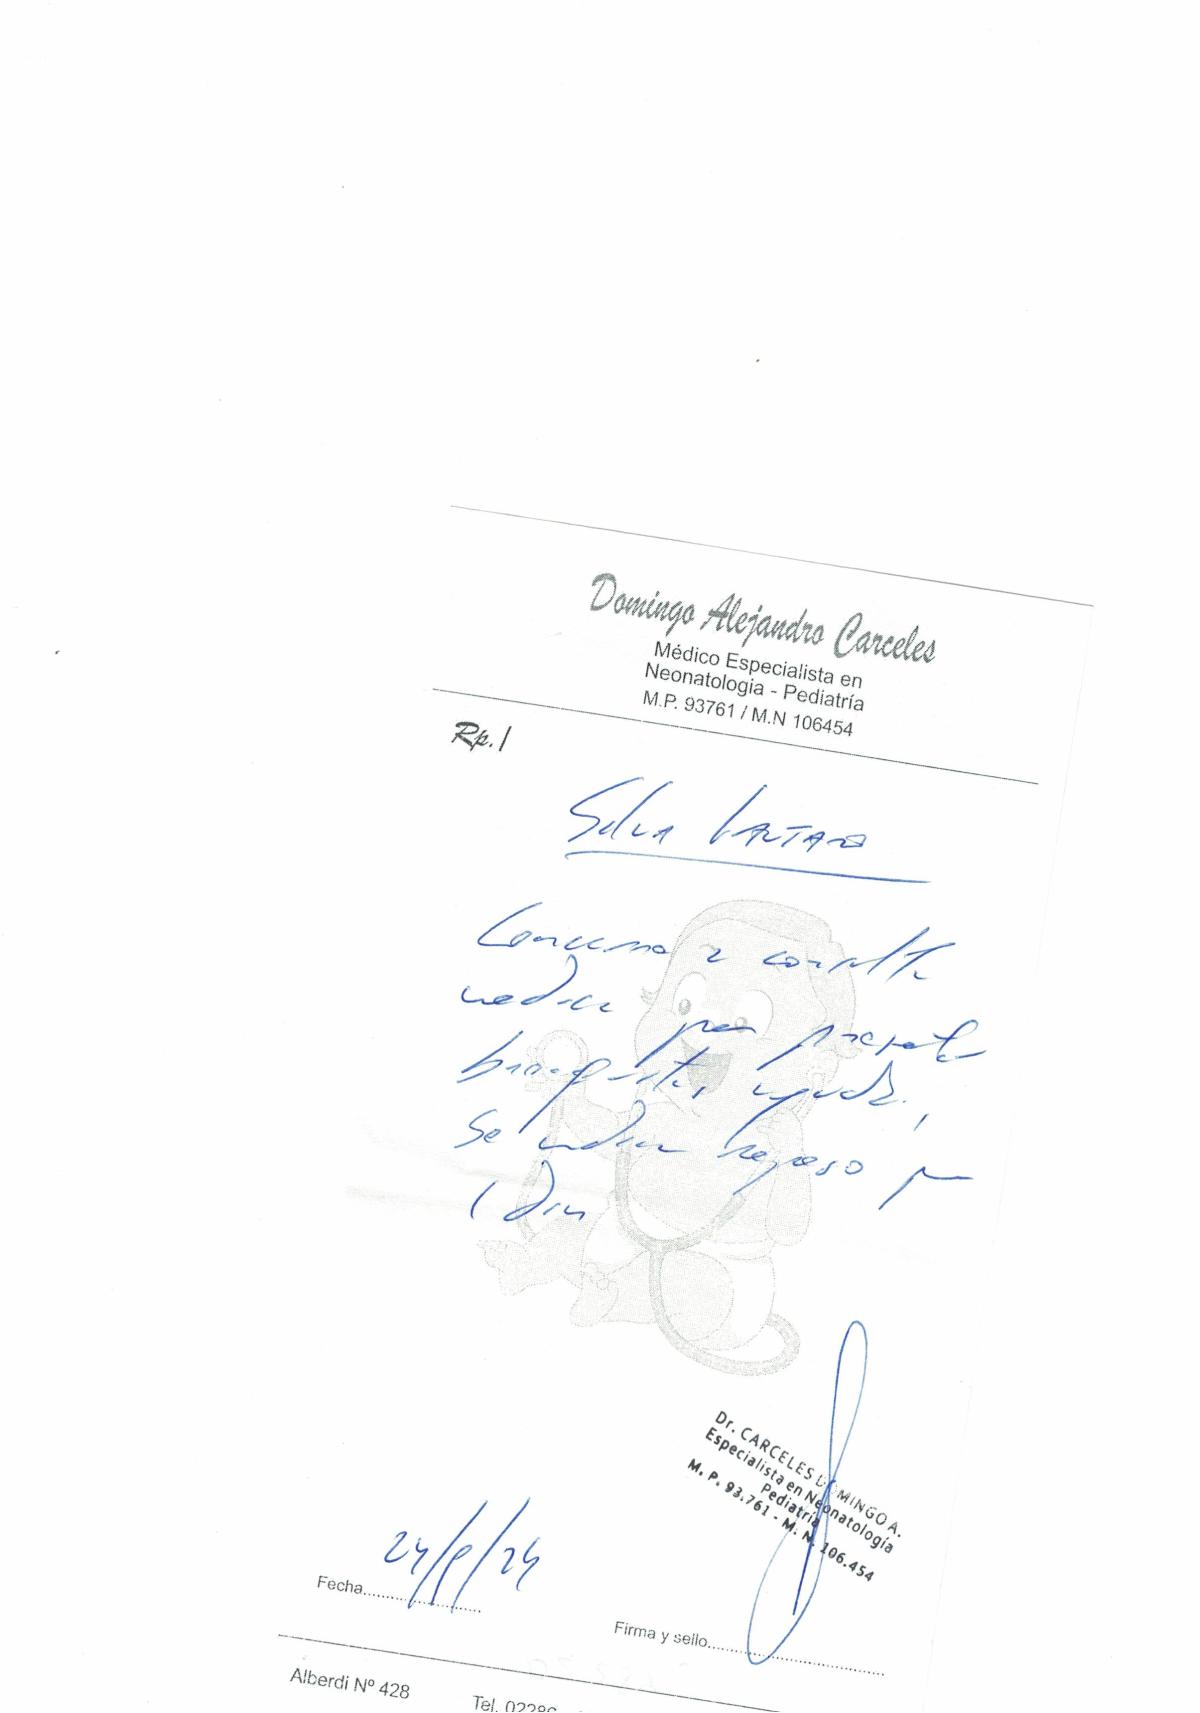 Domingo Alejandro Carceles
Médico Especialista en
Neonatologia - Pediatría
M.P. 93761 / M.N 106454
Rp./
Silva
Concurre a consulta
medica por presentar
bronquitis aguda,
Se indica reposo por
1 dia
Dr. CARCELES DOMINGO A.
Especialista en Neonatología
Pediatría
M. P. 93.761 - M. N. 106.454
24/8/24
Fecha
Firma y sello
Alberdi Nº 428
Tel. 02286